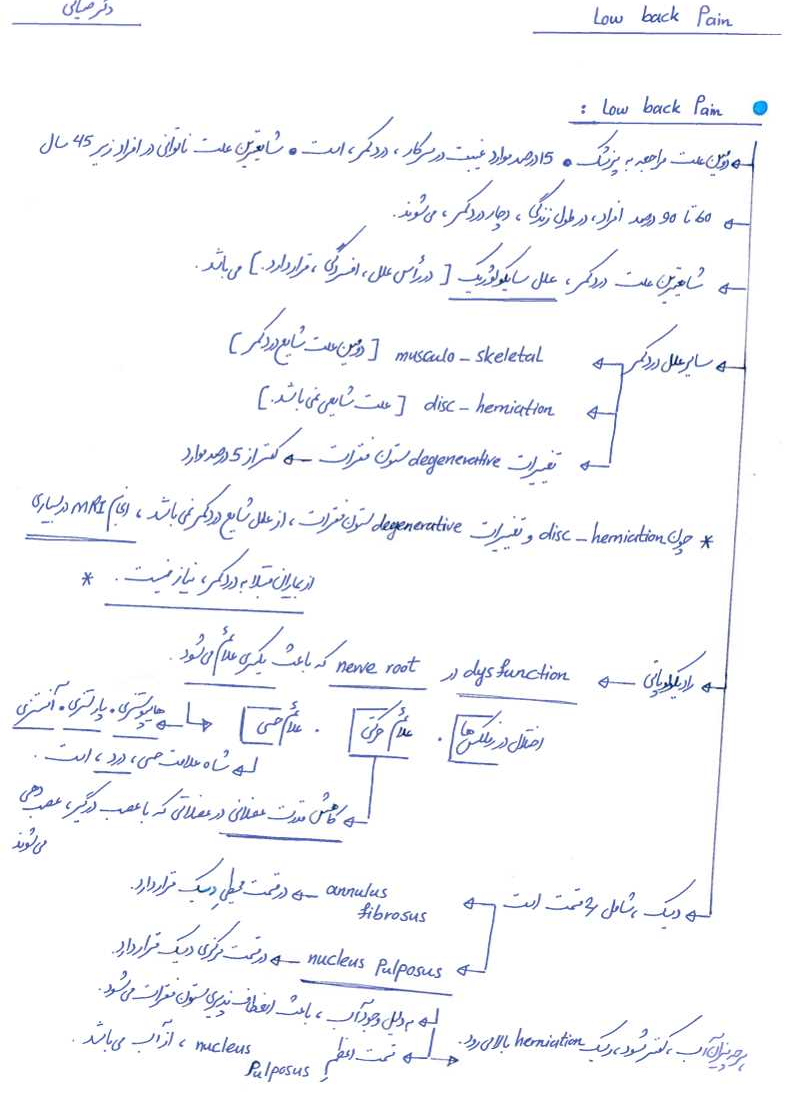 Low back Pain
دکتر ضیائی
Low back Pain :
دومین علت مراجعه به پزشک . 15 درصد موارد غیبت در سرکار ، دردکمر ، است . شایعترین علت ناتوانی در افراد زیر 45 سال
60 تا 90 درصد افراد ، در طول زندگی ، دچار دردکمر ، می‌شوند .
شایعترین علت دردکمر ، علل سایکولوژیک [ در رأس علل ، افسردگی ، قرار دارد . ] می باشد .
سایر علل دردکمر
musculo - skeletal [ دومین علت شایع دردکمر ]
disc - herniation [ علت شایعی نمی باشد . ]
تغییرات degenerative ستون فقرات ← کمتر از 5 درصد موارد
* چون disc - herniation و تغییرات degenerative ستون فقرات ، از علل شایع دردکمر نمی باشد ، انجام MRI در بسیاری
از بیماران مبتلا به دردکمر ، نیاز نیست . *
رادیکولوپاتی ← dysfunction در nerve root که باعث یکسری علائم می‌شود .
اختلال در رفلکس ها . علائم حرکتی . علائم حسی ← هایپوستزی . پارستزی . آنستزی
شاه علامت حسی ، درد ، است .
کاهش قدرت عضلانی در عضلاتی که با عصب درگیر ، عصب دهی
می‌شوند
دیسک ، شامل 2 قسمت است
annulus fibrosus ← در قسمت محیطی دیسک قرار دارد .
nucleus Pulposus ← در قسمت مرکزی دیسک قرار دارد .
به دلیل وجود آب ، باعث انعطاف پذیری ستون فقرات می‌شود .
قسمت اعظم nucleus Pulposus ، از آب می باشد .
هر چه میزان آب ، کمتر شود ، ریسک herniation بالا می رود .